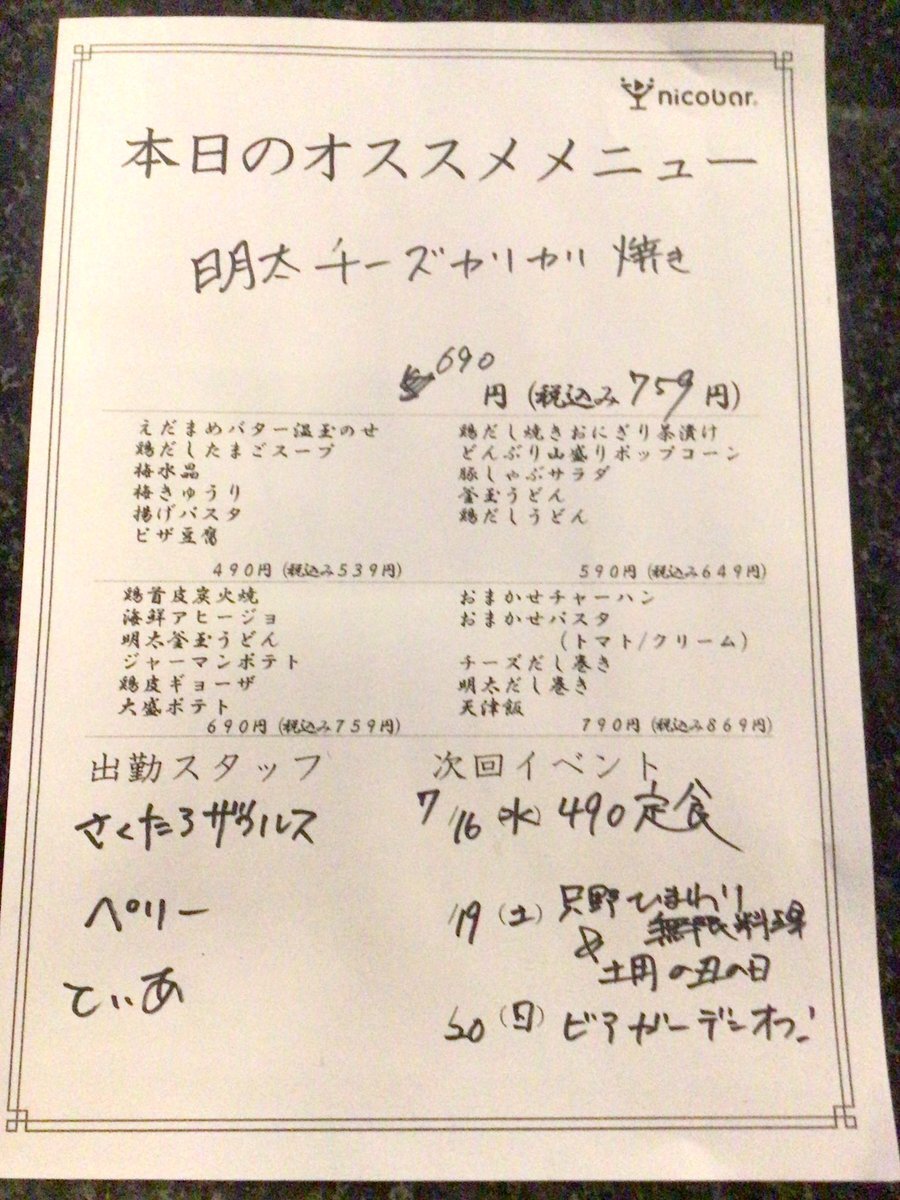 nicobar
本日のオススメメニュー
明太チーズカリカリ焼き
690
円 (税込み759円)
えだまめバター温玉のせ
鶏だしたまごスープ
梅水晶
梅きゅうり
揚げパスタ
ピザ豆腐
490円 (税込み539円)
鶏だし焼きおにぎり茶漬け
どんぶり山盛りポップコーン
豚しゃぶサラダ
釜玉うどん
鶏だしうどん
590円 (税込み649円)
鶏首皮炭火焼
海鮮アヒージョ
明太釜玉うどん
ジャーマンポテト
鶏皮ギョーザ
大盛ポテト
690円 (税込み759円)
おまかせチャーハン
おまかせパスタ
(トマト/クリーム)
チーズだし巻き
明太だし巻き
天津飯
790円 (税込み869円)
出勤スタッフ
さくたろザウルス
ペリー
てぃあ
次回イベント
7/16(水) 490定食
/19(土) 只野ひまわり
無限料理
& 土用の丑の日
/20(日) ビアガーデンオフ